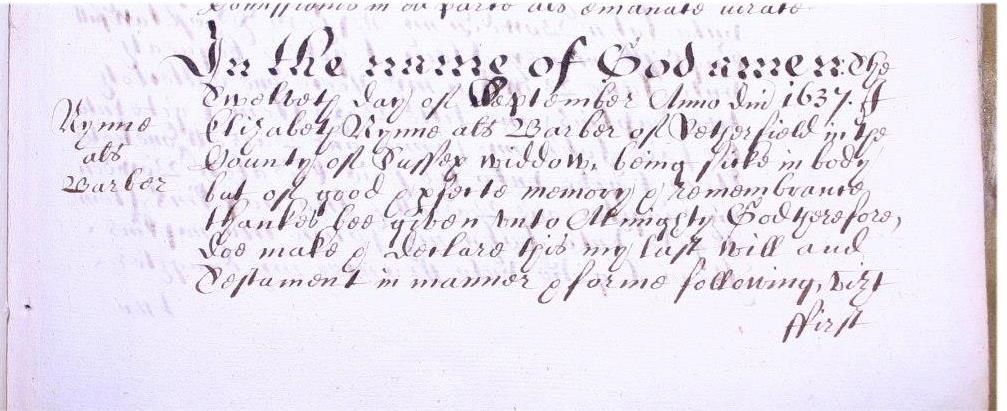 Comissionis in ea parte als emanate virate
In the name of God amen: The
Twelveth day of September Anno dni 1637. I
Nynne Elizabeth Nynne als Barber of Netherfield in the
als County of Sussex widdow, being sicke in body
Barber but of good & pfecte memory & remembrance
thankes bee given vnto Almighty God therefore,
doe make & declare this my last will and
Testament in manner & forme following, vizt
ffirst